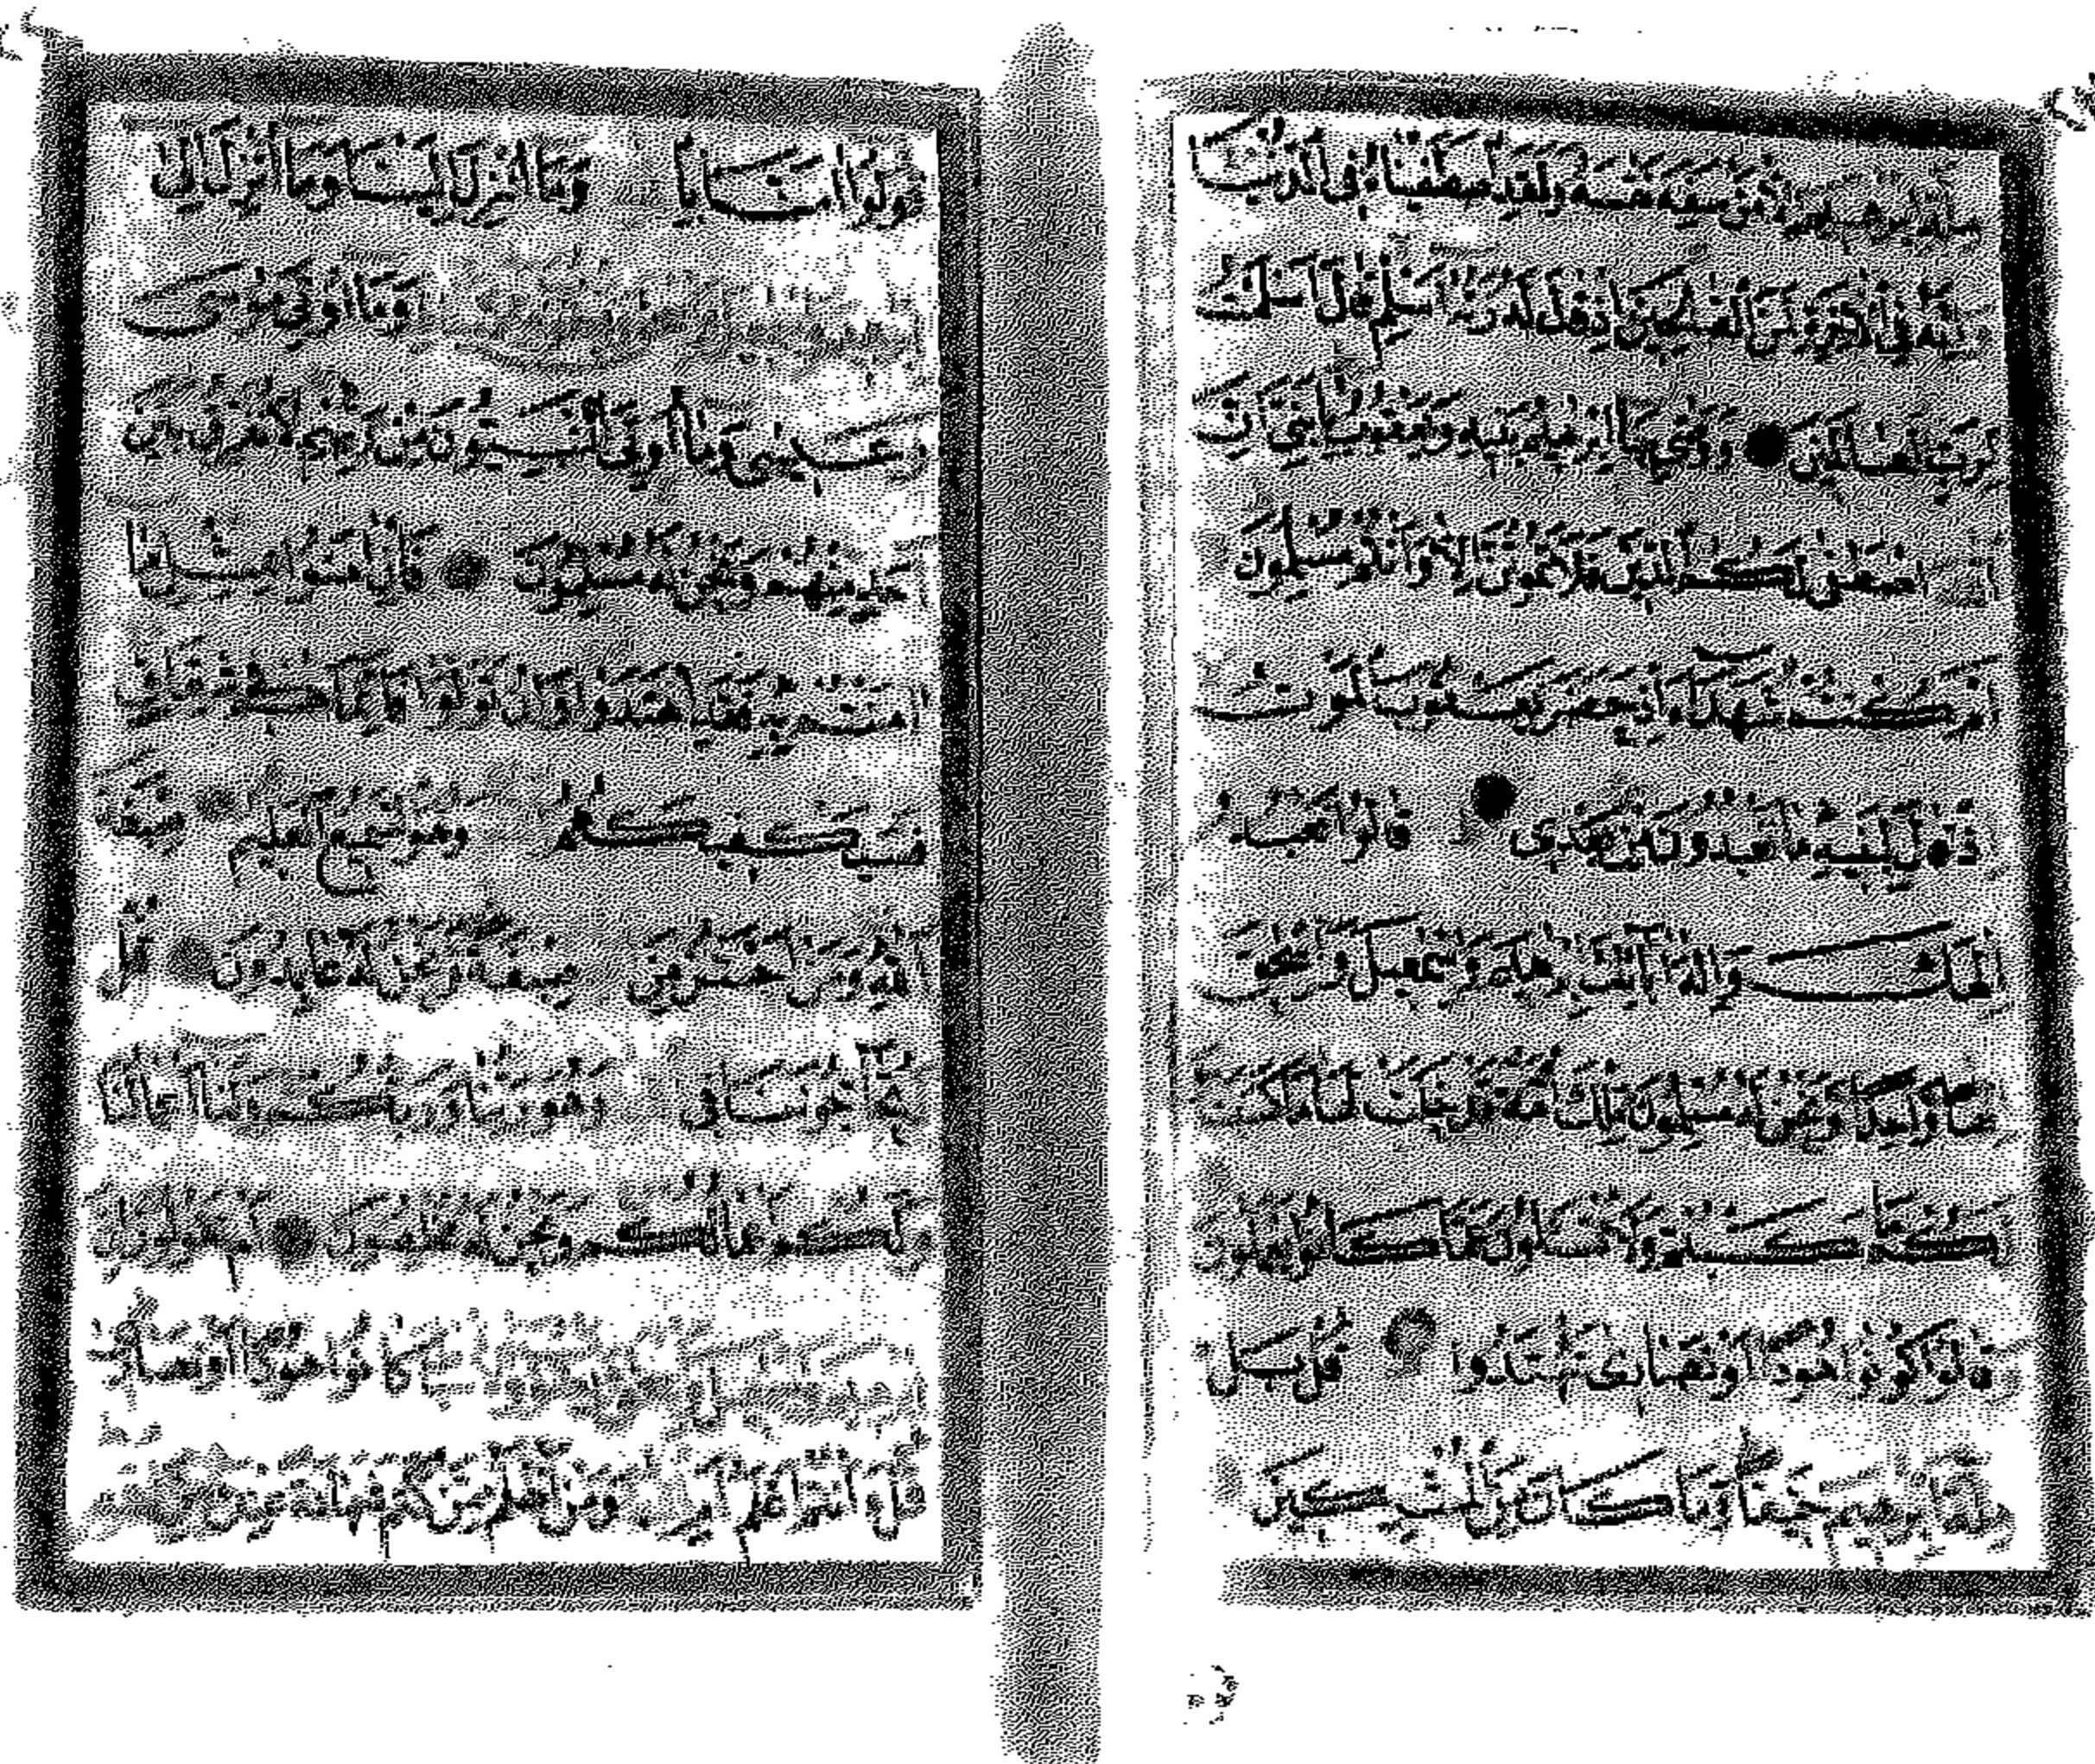 ملة ابرهيم الا من سفه نفسه ولقد اصطفيناه فى الدنيا
وانه فى الاخرة لمن الصلحين اذ قال له ربه اسلم قال اسلمت
لرب العالمين ووصى بها ابرهيم بنيه ويعقوب يا بنى ان
الله اصطفى لكم الدين فلا تموتن الا وانتم مسلمون
ام كنتم شهداء اذ حضر يعقوب الموت
اذ قال لبنيه ما تعبدون من بعدى قالوا نعبد
الهك واله ابائك ابرهيم واسمعيل واسحق
الها واحدا ونحن له مسلمون تلك امة قد خلت لها ما كسبت
ولكم ما كسبتم ولا تسئلون عما كانوا يعملون
قالوا كونوا هودا او نصارى تهتدوا قل بل
ملة ابرهيم حنيفا وما كان من المشركين
قولوا امنا بالله وما انزل الينا وما انزل الى
وما اوتى موسى
وعيسى وما اوتى النبيون من ربهم لا نفرق بين
احد منهم ونحن له مسلمون فان امنوا بمثل ما
امنتم به فقد اهتدوا وان تولوا فانما هم فى شقاق
فسيكفيكهم وهو السميع العليم صبغة
الله ومن احسن من صبغة ونحن له عابدون قل
اتحاجوننا فى وهو ربنا وربكم ولنا اعمالنا
ولكم اعمالكم ونحن له مخلصون ام تقولون ان
كانوا هودا او نصارى
قل اانتم اعلم ام الله ومن اظلم ممن كتم شهادة عنده من